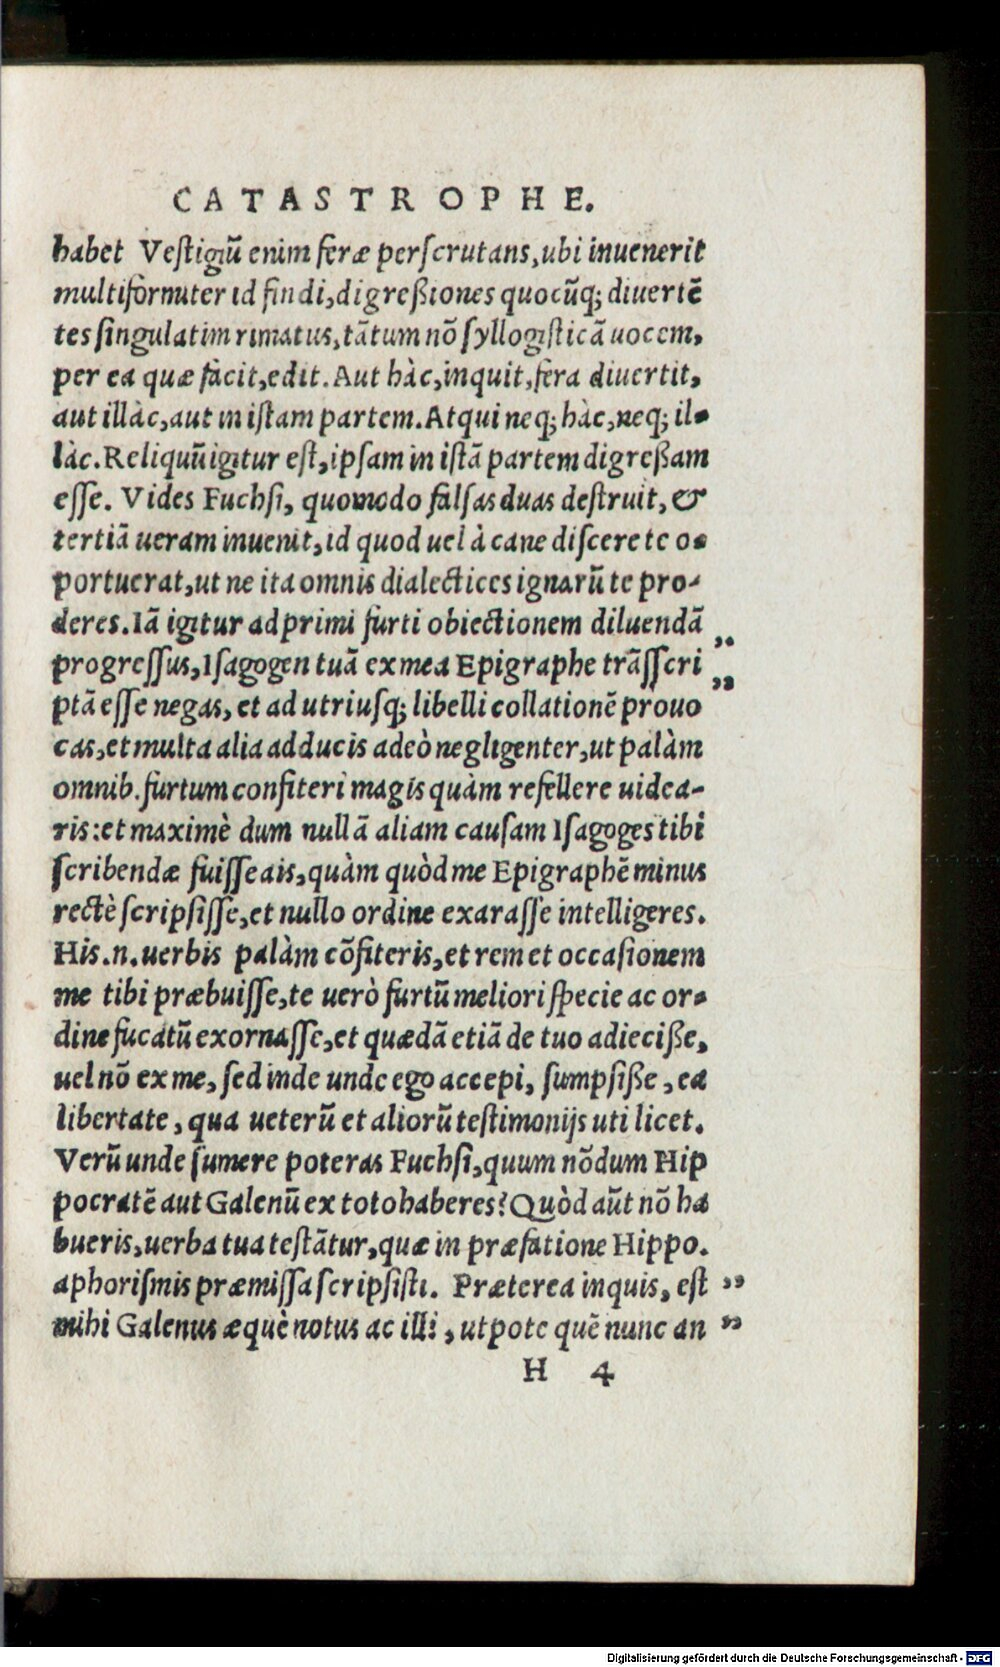 CATASTROPHE.
habet Vestigiũ enim feræ perscrutans, ubi inuenerit
multiformiter id findi, digreßiones quocũq; diuertẽ
tes singulatim rimatus, tãtum nõ syllogisticã uocem,
per ea quæ facit, edit. Aut hàc, inquit, fera diuertit,
aut illàc, aut in istam partem. Atqui neq; hàc, neq; il-
làc. Reliquũ igitur est, ipsam in istã partem digreßam
esse. Vides Fuchsi, quomodo falsas duas destruit, &
tertiã ueram inuenit, id quod uel à cane discere te o-
portuerat, ut ne ita omnis dialectices ignarũ te pro-
deres. Iã igitur ad primi furti obiectionem diluendã
progressus, Isagogen tuã ex mea Epigraphe trãsscri ,,
ptã esse negas, et ad utriusq; libelli collationẽ prouo ,,
cas, et multa alia adducis adeò negligenter, ut palàm
omnib. furtum confiteri magis quàm refellere uidea-
ris: et maximè dum nullã aliam causam Isagoges tibi
scribendæ fuisse ais, quàm quòd me Epigraphẽ minus
rectè scripsisse, et nullo ordine exarasse intelligeres.
His .n. uerbis palàm cõfiteris, et rem et occasionem
me tibi præbuisse, te uerò furtũ meliori specie ac or-
dine fucatũ exornasse, et quædã etiã de tuo adieciße,
uel nõ ex me, sed inde unde ego accepi, sumpsiße, ea
libertate, qua ueterũ et aliorũ testimonijs uti licet.
Verũ unde sumere poteras Fuchsi, quum nõdum Hip
pocratẽ aut Galenũ ex toto haberes? Quòd aũt nõ ha
bueris, uerba tua testãtur, quæ in præfatione Hippo.
aphorismis præmissa scripsisti. Præterea inquis, est ,,
mihi Galenus æquè notus ac illi, utpote quẽ nunc an ,,
H 4
Digitalisierung gefördert durch die Deutsche Forschungsgemeinschaft - DFG